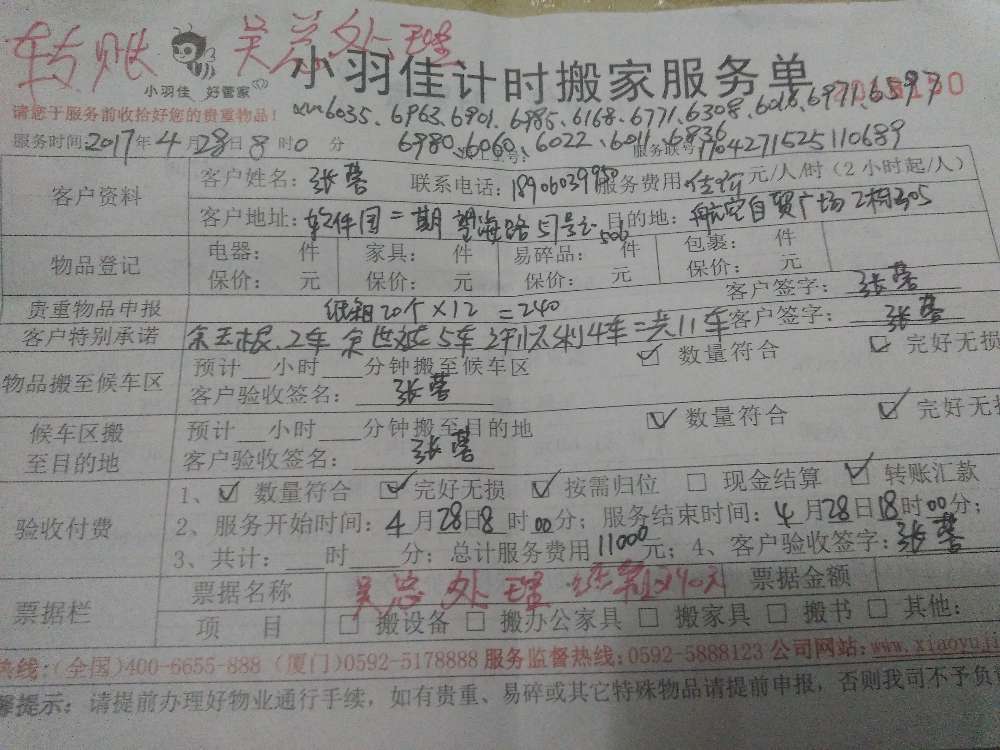 转账 吴总处理
小羽佳 好管家
小羽佳计时搬家服务单
请您于服务前收拾好您的贵重物品!
6035、6963、6901、6985、6168、6771、6308、6016、6971、6597
6980、6060、6022、6011、6836
服务时间:2017年4月28日8时0分 服务联号:
客户资料 客户姓名:张蓉 联系电话: 服务费用:估价元/人/时(2小时起/人)
客户地址:软件园二期望海路 目的地:航空自贸广场2栋305
物品登记 电器: 件 家具: 件 易碎品: 件 包裹: 件
保价: 元 保价: 元 保价: 元 保价: 元
贵重物品申报 纸箱20个×12=240 客户签字:张蓉
客户特别承诺 2车 5车 4车=共11车 客户签字:张蓉
物品搬至候车区 预计 小时 分钟搬至候车区 ☑ 数量符合 ☑ 完好无损
客户验收签名:张蓉
候车区搬至目的地 预计 小时 分钟搬至目的地 ☑ 数量符合 ☑ 完好无损
客户验收签名:张蓉
验收付费 1、☑ 数量符合 ☑ 完好无损 ☑ 按需归位 □ 现金结算 ☑ 转账汇款
2、服务开始时间:4月28日8时00分;服务结束时间:4月28日18时00分;
3、共计: 时 分;总计服务费用11000元;4、客户验收签字:张蓉
票据栏 票据名称 吴总处理 票据金额
项 目 □ 搬设备 □ 搬办公家具 □ 搬家具 □ 搬书 □ 其他:
热线:(全国)400-6655-888 (厦门)0592-5178888 服务监督热线:0592-5888123 公司网站:www.xiaoyuji
提示:请提前办理好物业通行手续,如有贵重、易碎或其它特殊物品请提前申报,否则我司不予负